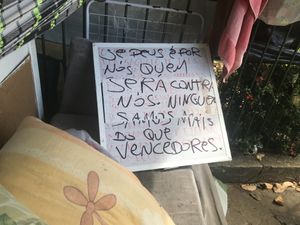 SE DEUS É POR
NÓS QUEM
SERÁ CONTRA
NÓS. NINGUEM
SAMOS MAIS
DO QUE
VENCEDORES.